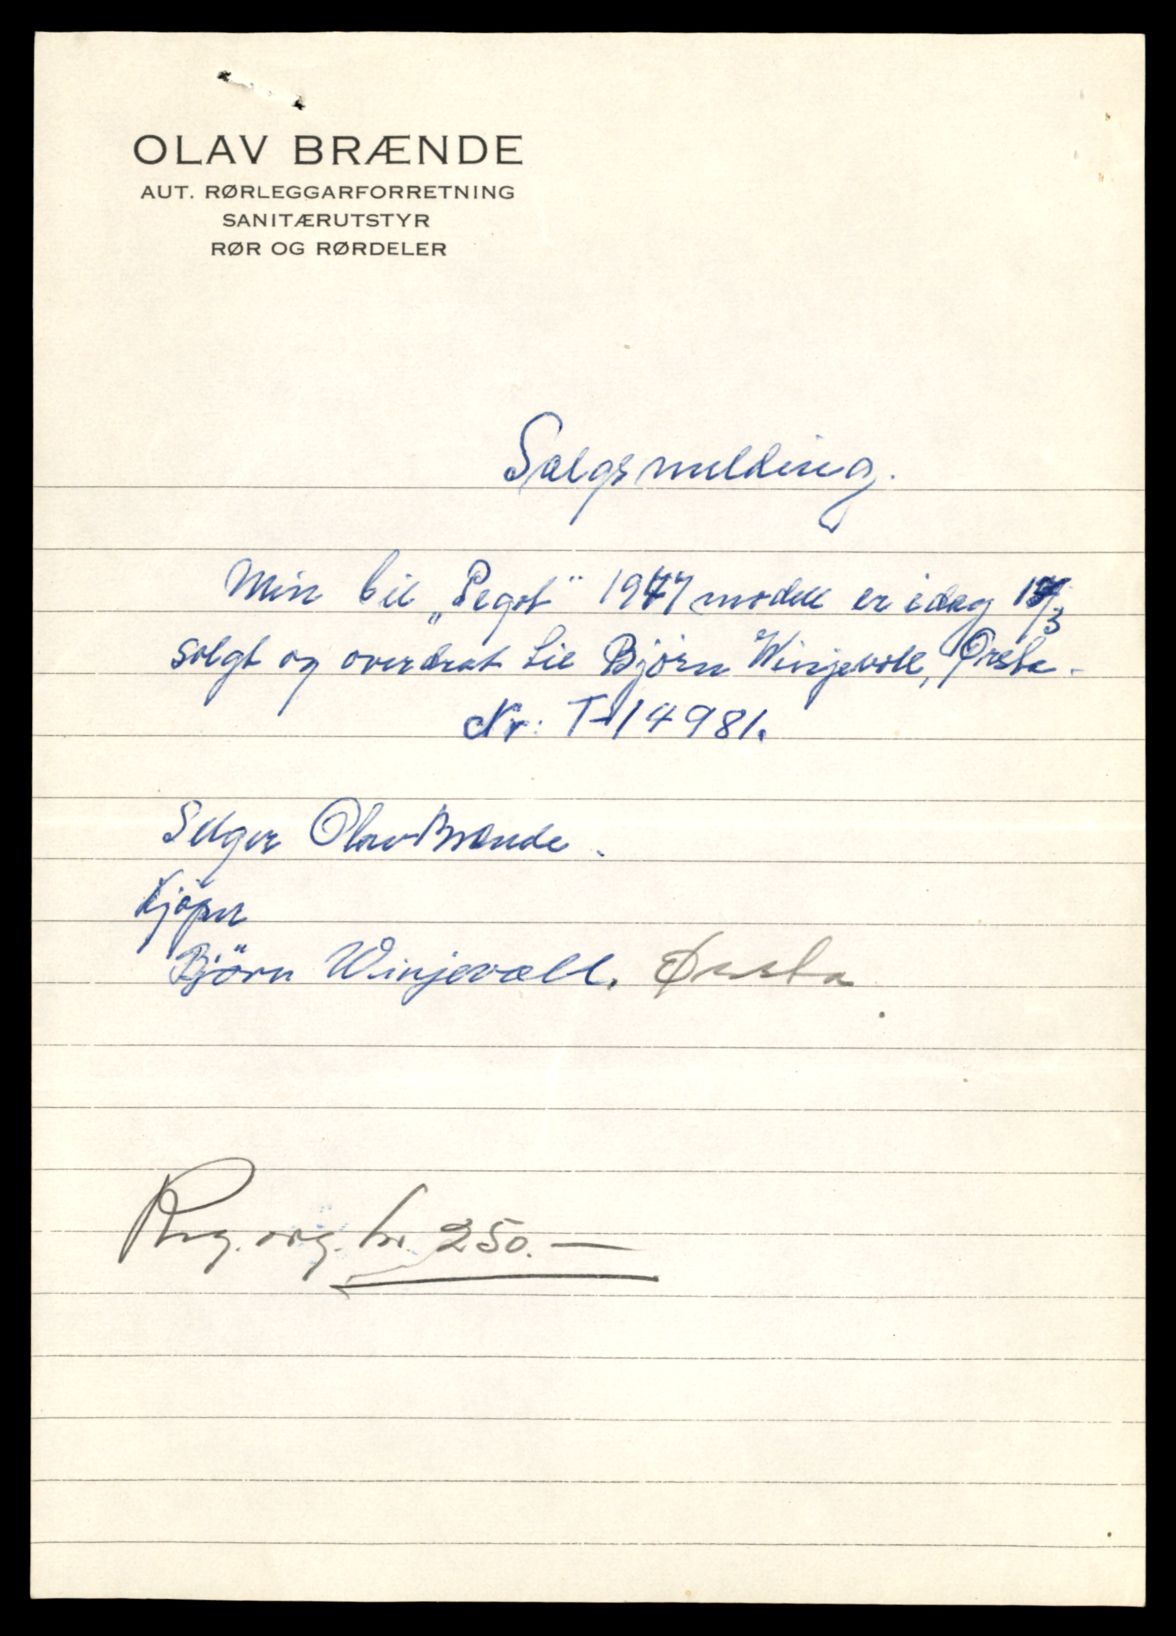 OLAV BRÆNDE
AUT. RØRLEGGARFORRETNING
SANITÆRUTSTYR
RØR OG RØRDELER
Salgsmelding.
Min bil „Pegot" 1947 modell er idag /3
solgt og overdrat til Bjørn Winjevoll, Ørsta.
Nr: T-14981.
Selger Olav Brænde.
Kjøper
Björn Winjevoll. Ørsta
Reg. avg. kr. 250.—